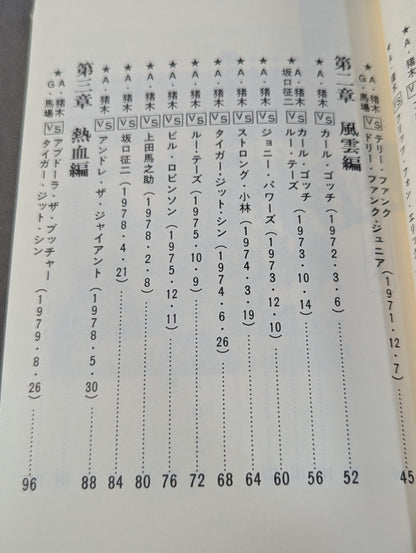 A・猪木 VS フリッツ・フォン・
★A・猪木 VS テリー・ファンク
G・馬場 ドリー・ファンク・ジュニア (1971・12・7) 45
第二章 風雲編
★A・猪木 VS カール・ゴッチ (1972・3・6)………… 52
★A・猪木 VS カール・ゴッチ
坂口征二 ルー・テーズ (1973・10・14)………… 56
★A・猪木 VS ジョニー・パワーズ (1973・12・10)………… 60
★A・猪木 VS ストロング・小林 (1974・3・19)………… 64
★A・猪木 VS タイガー・ジット・シン (1974・6・26)………… 68
★A・猪木 VS ルー・テーズ (1975・10・9)………… 72
★A・猪木 VS ビル・ロビンソン (1975・12・11)………… 76
★A・猪木 VS 上田馬之助 (1978・2・8)………… 80
★A・猪木 VS 坂口征二 (1978・4・21)………… 84
★A・猪木 VS アンドレ・ザ・ジャイアント (1978・5・30)………… 88
第三章 熱血編
★A・猪木 VS アブドーラ・ザ・ブッチャー
G・馬場 タイガー・ジット・シン (1979・8・26)………… 96